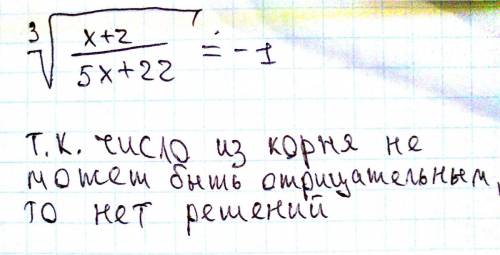 ∛((x+2)/(5x+22)) = -1
Т.К. число из корня не
может быть отрицательным,
то нет решений